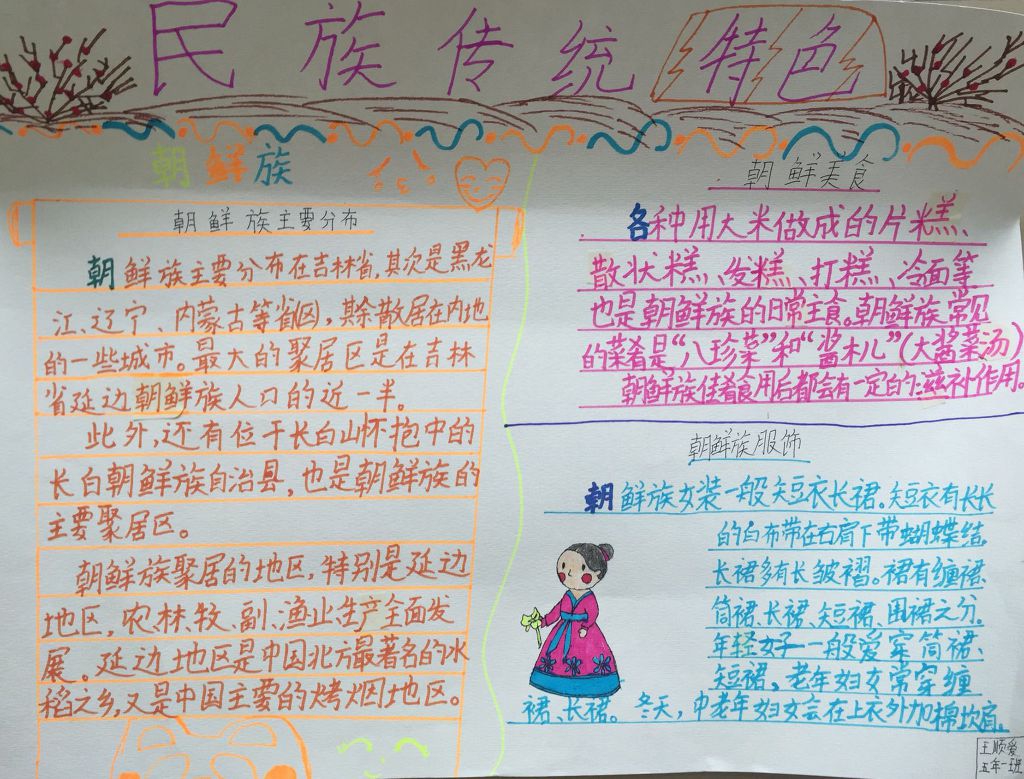 民族传统特色
朝鲜族
朝鲜族主要分布
朝鲜族主要分布在吉林省,其次是黑龙
江、辽宁、内蒙古等省区,其余散居在内地
的一些城市。最大的聚居区是在吉林
省延边朝鲜族人口的近一半。
此外,还有位于长白山怀抱中的
长白朝鲜族自治县,也是朝鲜族的
主要聚居区。
朝鲜族聚居的地区,特别是延边
地区,农、林、牧、副、渔业生产全面发
展。延边地区是中国北方最著名的水
稻之乡,又是中国主要的烤烟地区。
朝鲜美食
各种用大米做成的片糕、
散状糕、发糕、打糕、冷面等
也是朝鲜族的日常主食。朝鲜族常见
的菜肴是“八珍菜”和“酱木儿”(大酱菜汤)
朝鲜族佳肴食用后都会有一定的滋补作用。
朝鲜族服饰
朝鲜族女装一般短衣长裙。短衣有长长
的白布带在右肩下带蝴蝶结
长裙多有长皱褶。裙有缠裙、
筒裙、长裙、短裙、围裙之分。
年轻女子一般爱穿筒裙、
短裙,老年妇女常穿缠
裙、长裙。冬天,中老年妇女会在上衣外加棉坎肩。
王顺爱
五年一班